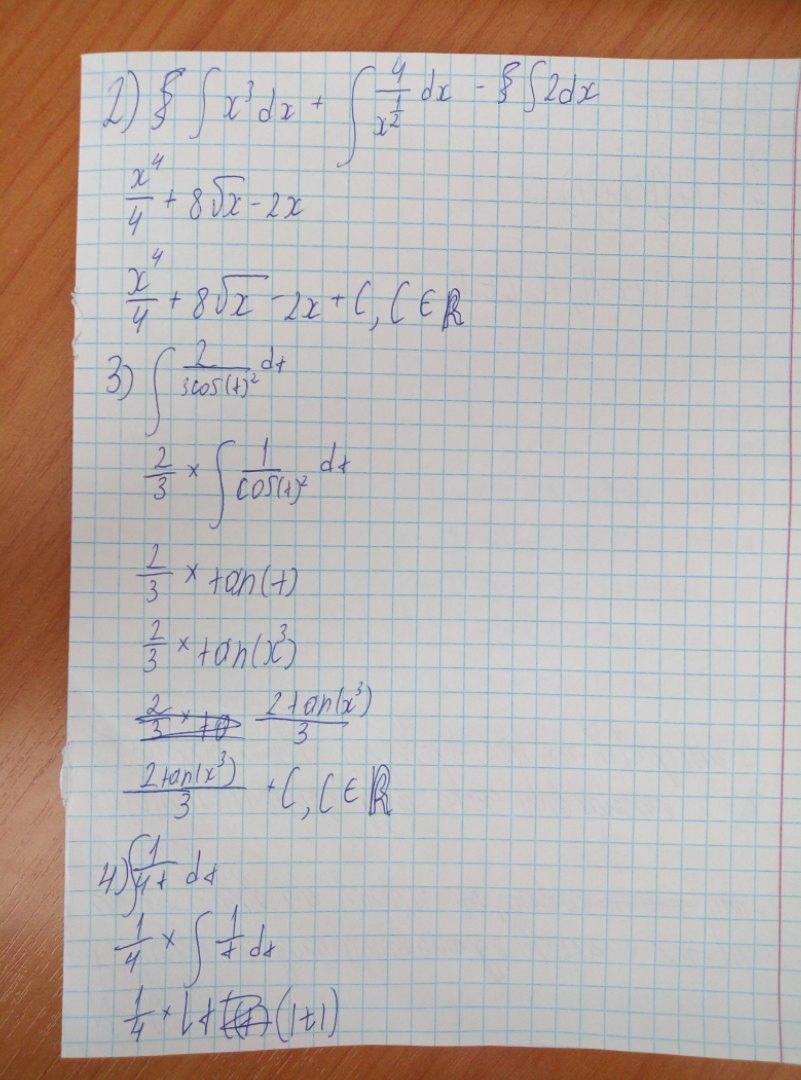 2) ∫ x³dx + ∫ 4/x^(1/2) dx - ∫ 2dx
x⁴/4 + 8√x - 2x
x⁴/4 + 8√x - 2x + C, C ∈ ℝ
3) ∫ 2/(3cos(t)²) dt
2/3 × ∫ 1/cos(t)² dt
2/3 × tan(t)
2/3 × tan(x³)
2tan(x³)/3
2tan(x³)/3 + C, C ∈ ℝ
4) ∫ 1/(4t) dt
1/4 × ∫ 1/t dt
1/4 × (|t|)